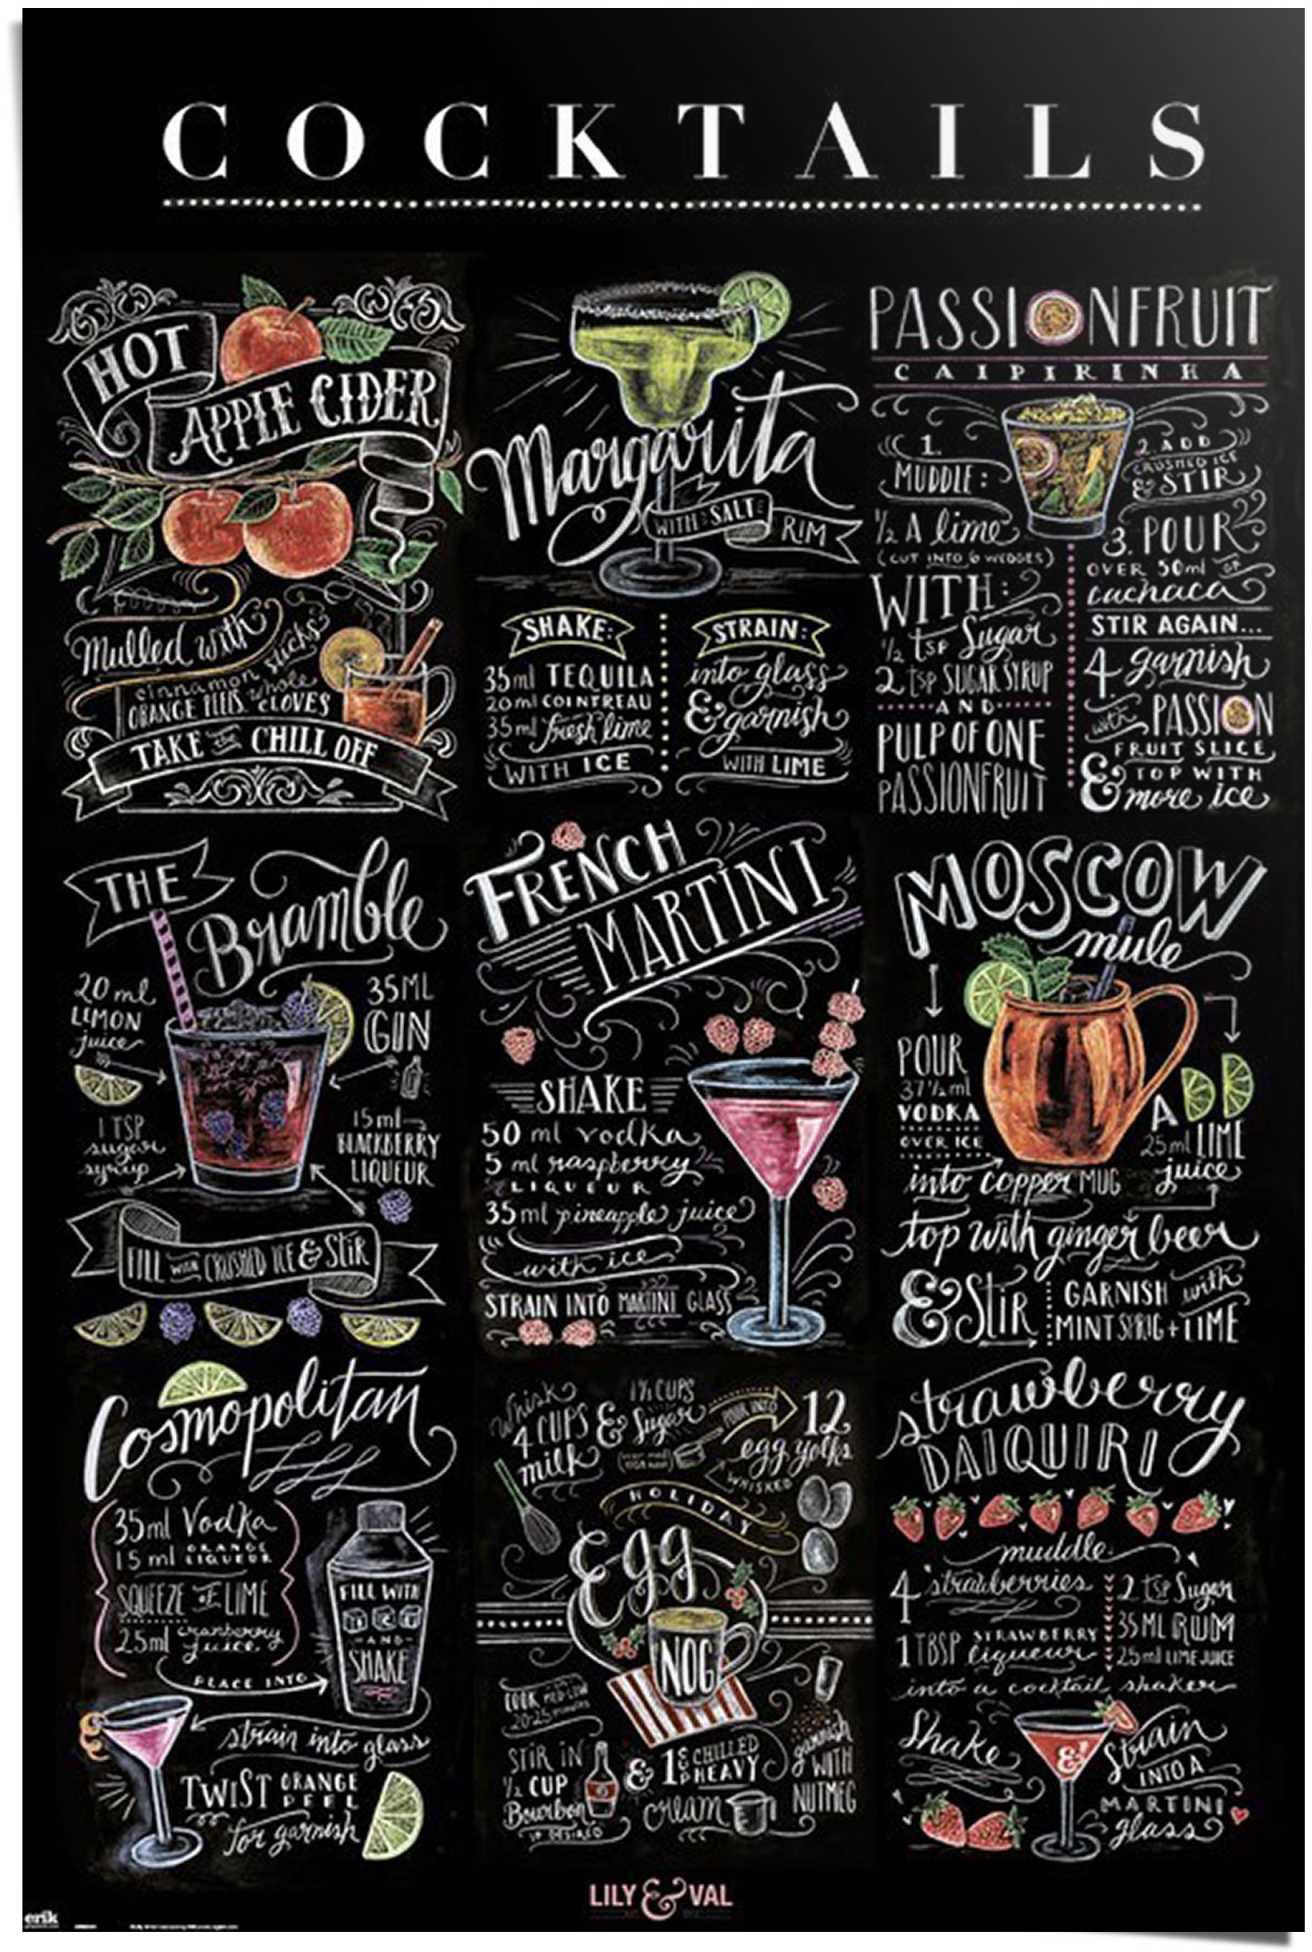 COCKTAILS
HOT
APPLE CIDER
Mulled with
cinnamon sticks
ORANGE PEELS, whole CLOVES
TAKE the CHILL OFF
Margarita
WITH SALT
RIM
SHAKE:
35ml TEQUILA
20ml COINTREAU
35ml fresh lime
WITH ICE
STRAIN:
into glass
& garnish
WITH LIME
PASSIONFRUIT
CAIPIRINHA
1.
MUDDLE:
½ A lime
(CUT INTO 6 WEDGES)
WITH:
½ tsp Sugar
2 tsp SUGAR SYRUP
AND
PULP OF ONE
PASSIONFRUIT
2. ADD
CRUSHED ICE
& STIR
3. POUR
OVER 50ml OF
cachaca
STIR AGAIN...
4. garnish
with PASSION
FRUIT SLICE
& TOP WITH
more ice
THE
Bramble
20 ml
LEMON
juice
35ML
GIN
1 TSP
sugar
syrup
15ml
BLACKBERRY
LIQUEUR
FILL WITH CRUSHED ICE & STIR
FRENCH
MARTINI
SHAKE
50 ml vodka
5 ml raspberry
LIQUEUR
35ml pineapple juice
with ice
STRAIN INTO MARTINI GLASS
MOSCOW
mule
POUR
37½ml
VODKA
OVER ICE
into copper MUG
ADD
25ml LIME
juice
top with ginger beer
& Stir
GARNISH with
MINT SPRIG + LIME
Cosmopolitan
35ml Vodka
15ml ORANGE
LIQUEUR
SQUEEZE OF LIME
25ml cranberry
juice
PLACE INTO
FILL WITH
ICE
AND
SHAKE
strain into glass
TWIST ORANGE
PEEL
for garnish
Whisk
4 CUPS
milk
& 1½ CUPS
Sugar
POUR INTO
12
egg yolks
WHISKED
HOLIDAY
Egg
NOG
COOK MED-LOW
20-25 minutes
STIR IN
½ CUP
Bourbon
IF DESIRED
& 1 CHILLED
HEAVY
cream
garnish
WITH
NUTMEG
strawberry
DAIQUIRI
muddle
4 strawberries
1 TBSP STRAWBERRY
liqueur
2 tsp Sugar
35 ML RUM
25ml LIME JUICE
into a cocktail shaker
Shake
&
Strain
INTO A
MARTINI
glass
LILY & VAL
erik